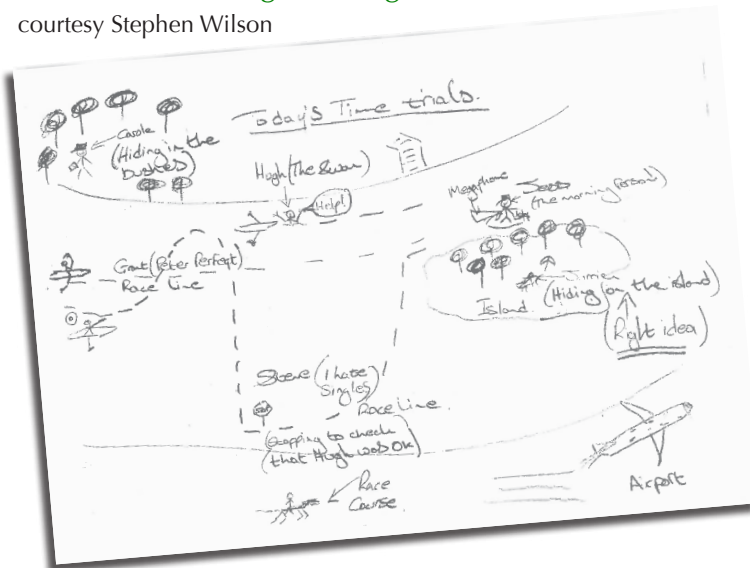 courtesy Stephen Wilson
Today's Time trials.
(Hiding in the
bushes)
Hugh (The Swan)
Help!
Megaphone
(The morning person)
Grant (Peter Perfect)
Race Line
Island.
(Hiding on the island)
(Right idea)
Steve (I hate
Singles)
Race Line.
(Stopping to check
that Hugh was OK)
Race
Course.
Airport